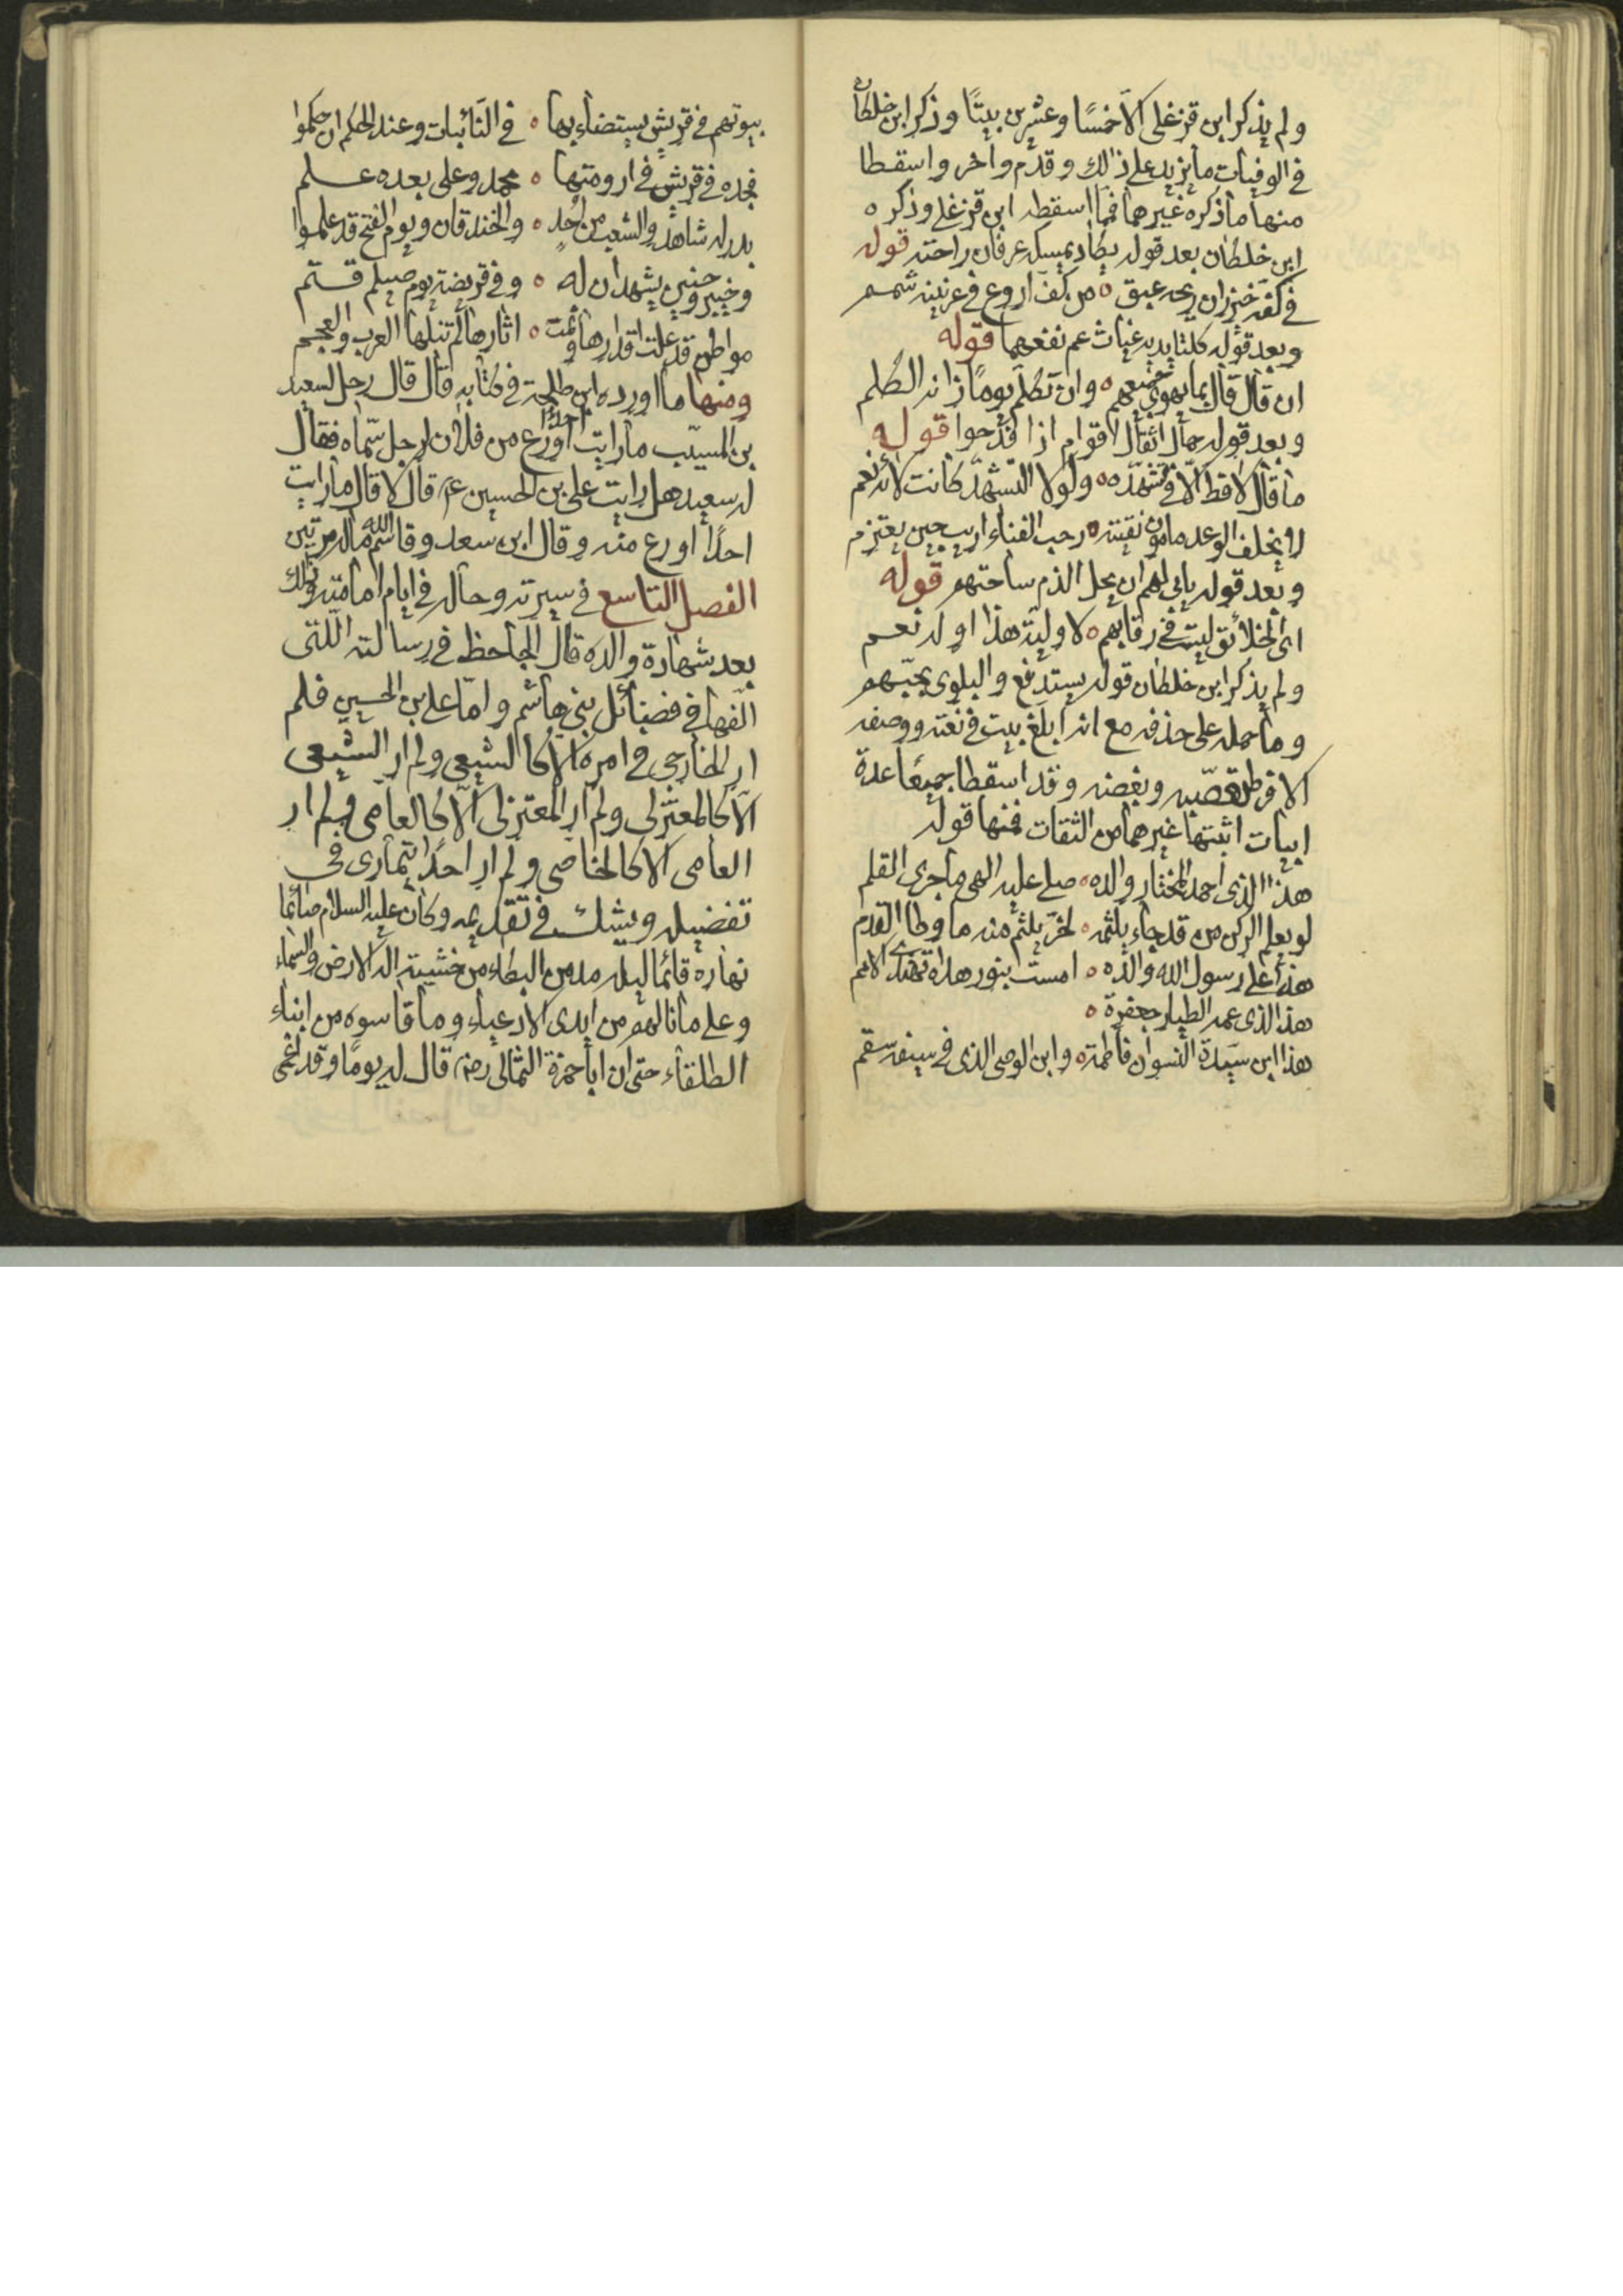 ولم يذكر ابن قزغلي الا خمسًا وعشرين بيتًا وذكر ابن خلكان
في الوفيات ما يزيد على ذلك وقدّم واخر واسقطا
منها ما ذكره غيرهما فمما اسقطه ابن قزغلي وذكره
ابن خلكان بعد قوله يكاد يمسكه عرفان راحته قوله
في كفه خيزران ريحه عبق ٥ من كف اروع في عرنينه شمم
وبعد قوله كلتا يديه غياث عم نفعهما قوله
ان قال قال بما يهوى جميعهم ٥ وان تكلم يومًا زانه الكلم
وبعد قوله حمال اثقال اقوام اذا فدحوا قوله
ما قال لا قط الا في تشهده ٥ ولولا التشهد كانت لاؤه نعم
لا يخلف الوعد مامون نقيته ٥ رحب الفناء اريب حين يعتزم
وبعد قوله يابى لهم ان يحل الذم ساحتهم قوله
اي الخلائق ليست في رقابهم ٥ لاولية هذا او له نعم
ولم يذكر ابن خلكان قوله يستدفع والبلوى بحبّهم
وما حمله على حذفه مع انه ابلغ بيت في نعته ووصفه
الا فرط تعصّبه وبغضه وقد اسقطا جميعًا عدة
ابيات اثبتها غيرهما من الثقات فمنها قوله
هذا الذي احمد المختار والده ٥ صلى عليه الهي ما جرى القلم
لو يعلم الركن من قد جاء يلثمه ٥ لخرّ يلثم منه ما وطا القدم
هذا علي رسول الله والده ٥ امست بنور هداه تهتدي الامم
هذا الذي عمه الطيار جعفرة ٥
هذا ابن سيدة النسوان فاطمة ٥ وابن الوصي الذي في سيفه سقم
بيوتهم في قريش يستضاء بها ٥ في النائبات وعند الحكم ان حكموا
فجده في قريش في ارومتها ٥ محمد وعلي بعده علم
بدر له شاهد والشعب من احُدٍ ٥ والخندقان ويوم الفتح قد علموا
وخيبر وحنين يشهدان له ٥ وفي قريضة يوم صيلم قتم
مواطن قد علت اقدارها ونمت ٥ اثارها لم تنلها العرب والعجم
ومنها ما اورده ابن طلحة في كتابه قال قال رجل لسعيد
بن المسيّب ما رايت احدًا اورع من فلان لرجل سمّاه فقال
له سعيد هل رايت علي بن الحسين ع قال لا قال ما رايت
احدًا اورع منه وقال ابن سعد وقاسم الله ماله مرتين
الفصل التاسع في سيرته وحاله في ايام امامته وذلك
بعد شهادة والده قال الجاحظ في رسالته اللتى
الّفها في فضائل بني هاشم وامّا علي بن الحسين فلم
ار الخارجي في امره الا كالشيعي ولم ار الشيعي
الّا كالمعتزلي ولم ار المعتزلي الّا كالعامّي ولم ار
العامي الا كالخاصي ولم ار احدًا يتمارى في
تفضيله ويشك في تقديمه وكان عليه السلام صائمًا
نهاره قائما ليله مدمن البكاء من خشية اله الارض والسماء
وعلى ما نالهم من ايدى الادعياء وما قاسوه من ابناء
الطلقاء حتى ان ابا حمزة الثمالي رض قال له يومًا وقد اغمي